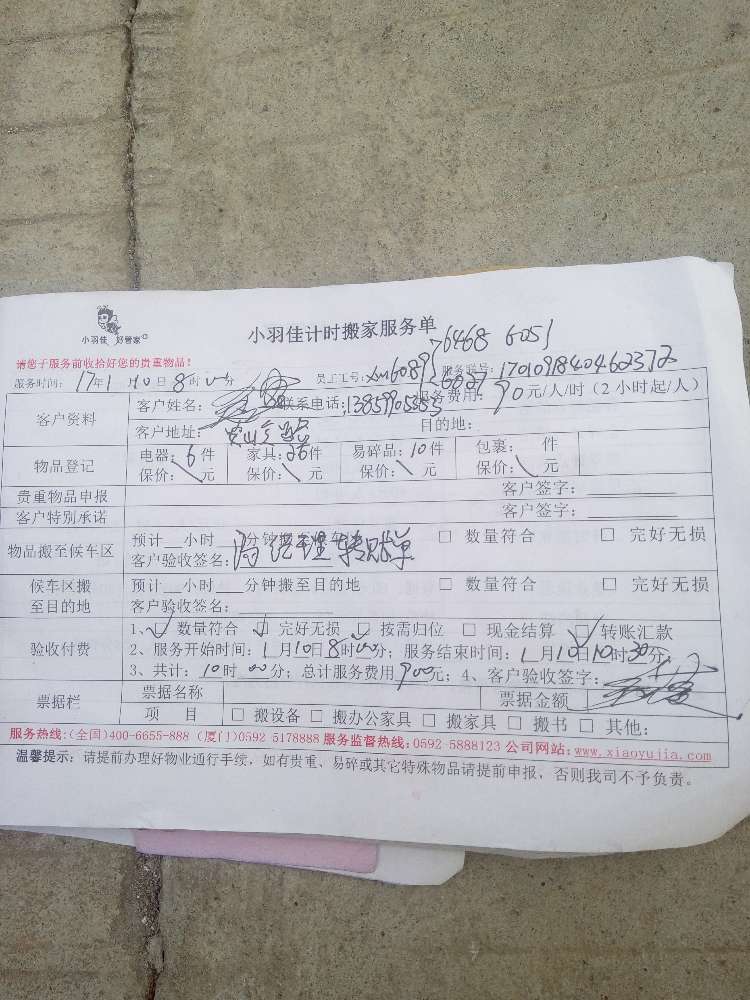 小羽佳 好管家
小羽佳计时搬家服务单
6468 6051
请您于服务前收拾好您的贵重物品！
服务时间：17年1月10日8时00分 员工工号：xm6089 6027 服务联号：1701091840462372
客户资料 客户姓名： 联系电话：13859905353 服务费用：90元/人/时（2小时起/人）
客户地址： 目的地：
物品登记 电器：6件 家具：26件 易碎品：10件 包裹： 件
保价： 元 保价： 元 保价： 元 保价： 元
贵重物品申报 客户签字：
客户特别承诺 客户签字：
物品搬至候车区 预计 小时 分钟 □ 数量符合 □ 完好无损
客户验收签名： 经理 转账单
候车区搬至目的地 预计 小时 分钟搬至目的地 □ 数量符合 □ 完好无损
客户验收签名：
验收付费 1、☑ 数量符合 ☑ 完好无损 ☑ 按需归位 □ 现金结算 ☑ 转账汇款
2、服务开始时间：1月10日8时00分；服务结束时间：1月10日10时30分；
3、共计：10时00分；总计服务费用900元；4、客户验收签字：
票据栏 票据名称 票据金额
项 目 □ 搬设备 □ 搬办公家具 □ 搬家具 □ 搬书 □ 其他：
服务热线：(全国)400-6655-888 (厦门)0592 5178888 服务监督热线：0592-5888123 公司网站：www.xiaoyujia.com
温馨提示：请提前办理好物业通行手续，如有贵重、易碎或其它特殊物品请提前申报，否则我司不予负责。